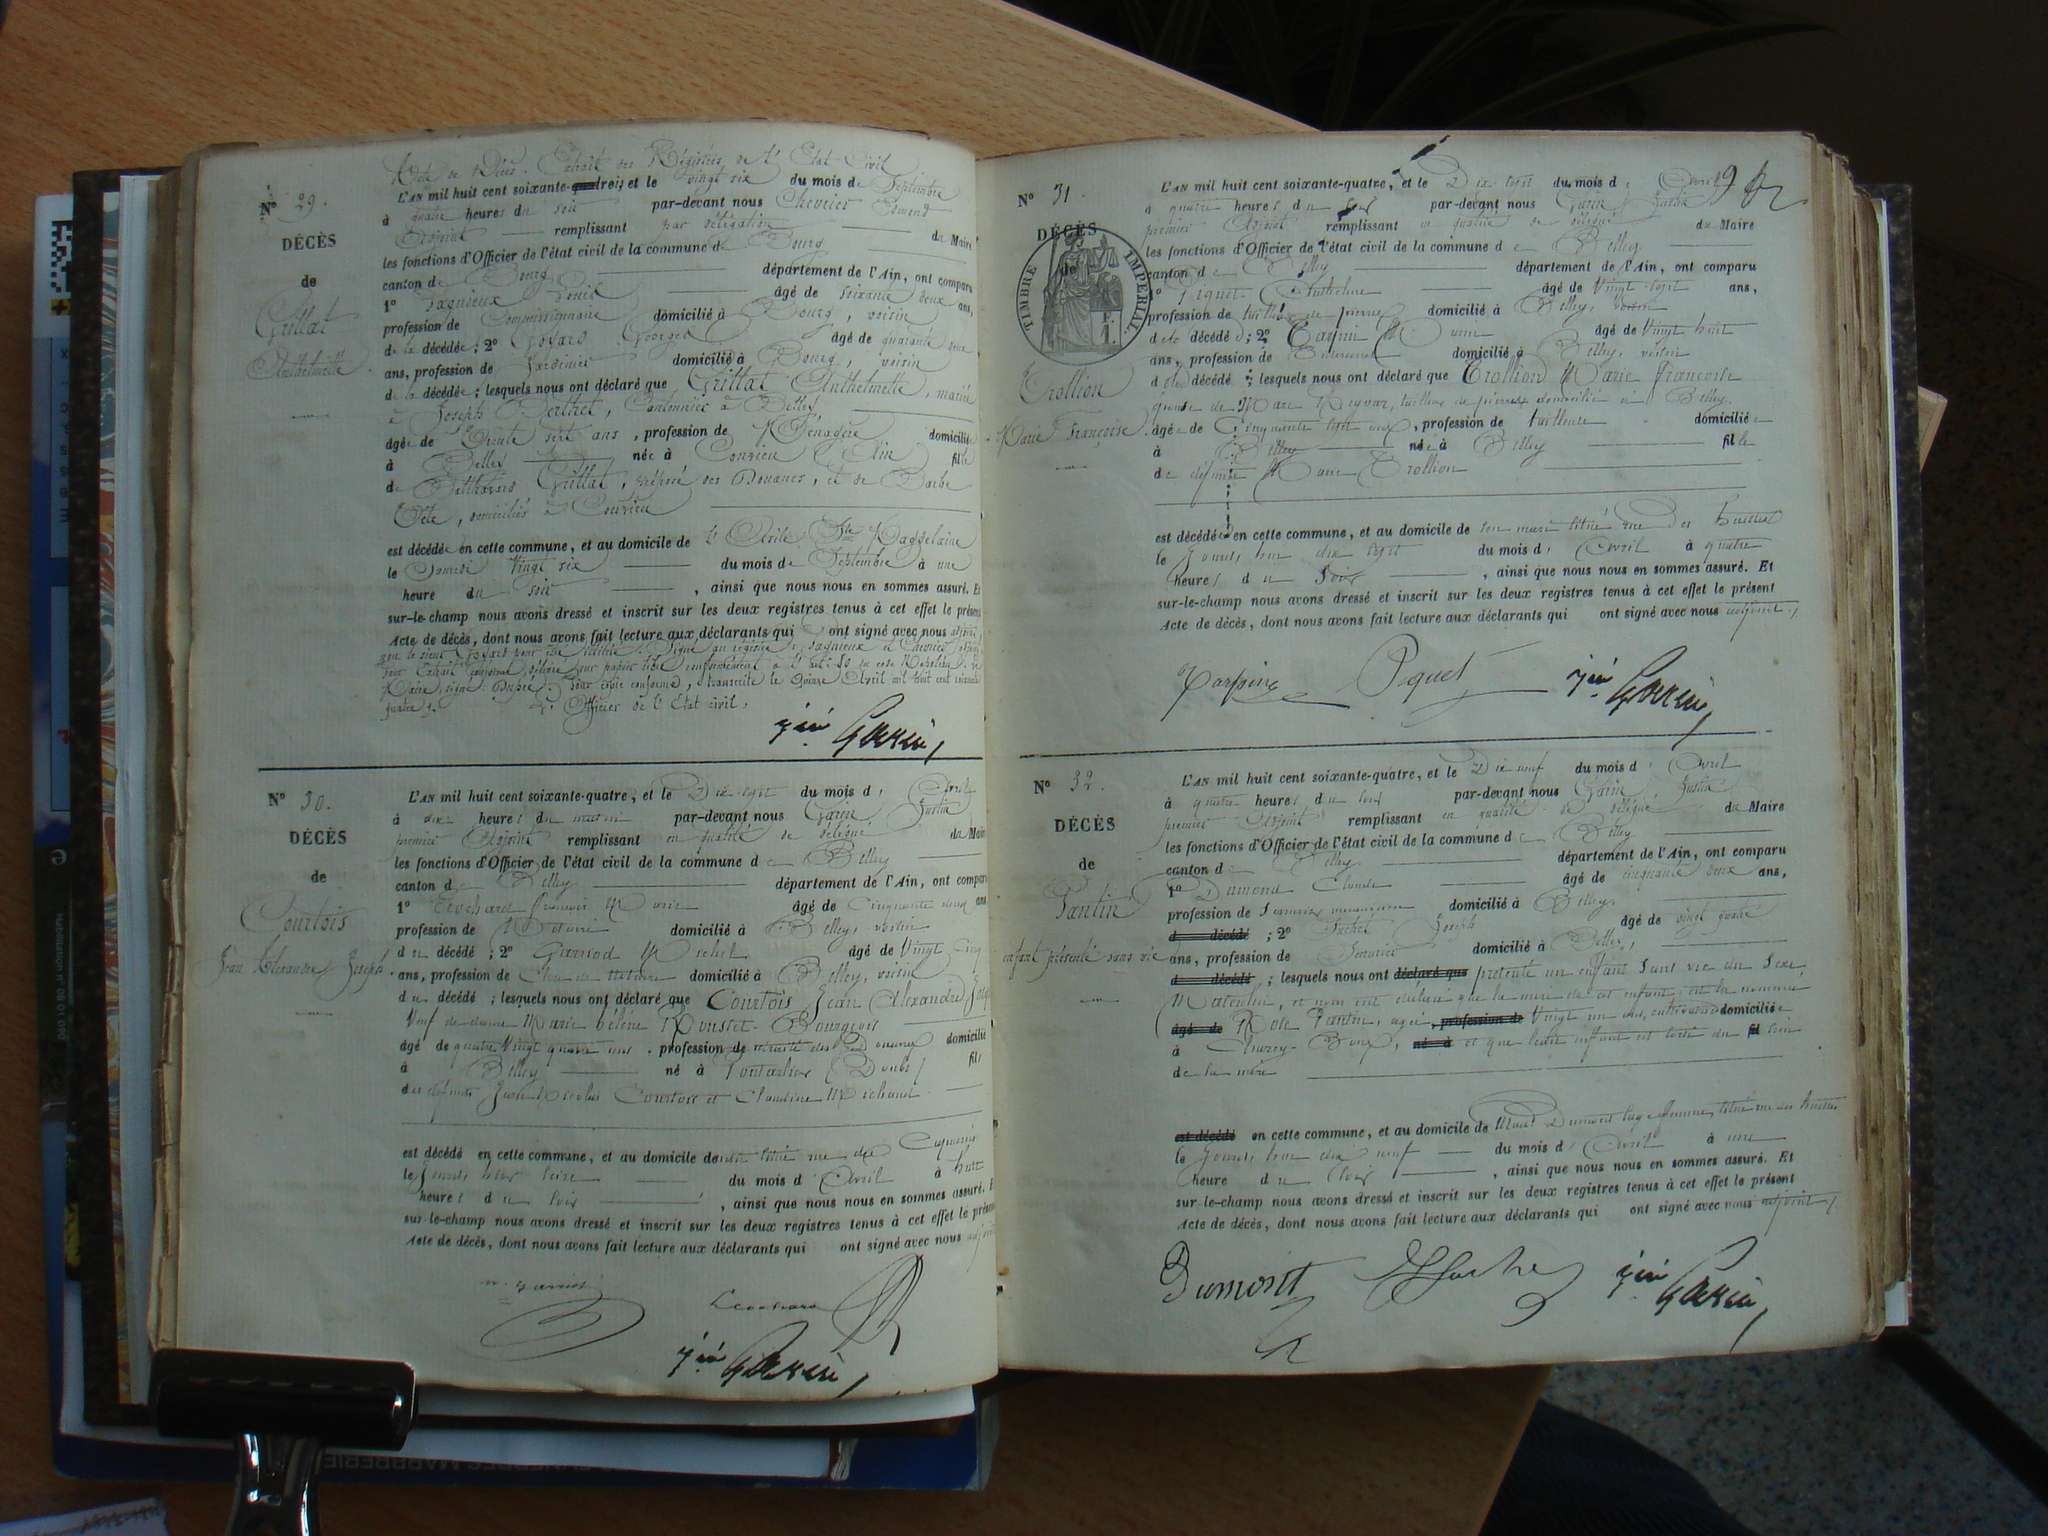 Acte de Décès. Extrait des Régistres de l'Etat Civil
N° 29.
DÉCÈS
de
Grillat
Anthelmette
L'AN mil huit cent soixante-trois et le vingt six du mois de Septembre
à quatre heures du soir par-devant nous Chevrier Edmond
Adjoint remplissant par délégation du Maire
les fonctions d'Officier de l'état civil de la commune de Bourg
canton de Bourg département de l'Ain, ont comparu
1° Louis âgé de soixante deux ans,
profession de Commissionnaire domicilié à Bourg, voisin
de la décédée; 2° Goyard Georges âgé de quarante
ans, profession de Jardinier domicilié à Bourg, voisin
de la décédée; lesquels nous ont déclaré que Grillat Anthelmette, mariée
à Joseph Berthet, Cantonnier à Belley,
âgée de Trente sept ans, profession de Ménagère domiciliée
à Belley née à Conzieu (Ain) fille
de Balthazard Grillat, préposé des Douanes, et de Barbe
domiciliés à Conzieu
est décédée en cette commune, et au domicile de l'Asile Ste Magdelaine
le Samedi vingt six du mois de Septembre à une
heure du soir, ainsi que nous nous en sommes assuré. Et
sur-le-champ nous avons dressé et inscrit sur les deux registres tenus à cet effet le présent
Acte de décès, dont nous avons fait lecture aux déclarants qui ont signé avec nous
non le sieur Goyard pour être illettré. Signé au régistre: et Chevrier
Pour Extrait conforme, délivré sur papier libre conformément à l'art. 80 du code Napoléon. Le
Maire, signé: Pour copie conforme, transcrite le quinze Avril mil huit cent soixante
quatre. L'Officier de l'Etat civil,
Garin
N° 30.
DÉCÈS
de
Courtois
Jean Alexandre Joseph
L'AN mil huit cent soixante-quatre, et le Dix sept du mois d'Avril
à heures du matin par-devant nous Garin, Justin
premier Adjoint remplissant en qualité de délégué du Maire
les fonctions d'Officier de l'état civil de la commune de Belley
canton de Belley département de l'Ain, ont comparu
1° François Marie âgé de Cinquante cinq ans
profession de Notaire domicilié à Belley, voisin
du décédé; 2° Michel âgé de Vingt cinq
ans, profession de Clerc de Notaire domicilié à Belley, voisin
du décédé; lesquels nous ont déclaré que Courtois Jean Alexandre
Veuf de dame Marie hélène Rousset-Bourgeois
âgé de quatre Vingt quatre ans, profession de domicilié
à Belley né à Pontarlier (Doubs) fils
des défunts Nicolas Courtois et Claudine Michaud
est décédé en cette commune, et au domicile de situé rue des Capucins
le du mois d'Avril à huit
heures du soir, ainsi que nous nous en sommes assuré. Et
sur-le-champ nous avons dressé et inscrit sur les deux registres tenus à cet effet le présent
Acte de décès, dont nous avons fait lecture aux déclarants qui ont signé avec nous
Garin
N° 31.
DÉCÈS
de
TIMBRE IMPÉRIAL
Trollion
Marie Françoise
L'AN mil huit cent soixante-quatre, et le Dix sept du mois d'Avril
à quatre heures du soir par-devant nous Garin, Justin
premier Adjoint remplissant en qualité de délégué du Maire
les fonctions d'Officier de l'état civil de la commune de Belley
canton de Belley département de l'Ain, ont comparu
1° Piquet Anthelme âgé de Vingt sept ans,
profession de tailleur de pierres domicilié à Belley, voisin
de la décédée; 2° âgé de Vingt huit
ans, profession de domicilié à Belley, voisin
de la décédée; lesquels nous ont déclaré que Trollion Marie Françoise
épouse de Marc tailleur de pierres domicilié à Belley
âgée de Cinquante sept ans, profession de tailleuse domiciliée
à Belley née à Belley fille
de défunt Marc Trollion
est décédée en cette commune, et au domicile de son mari situé rue des
le dix sept du mois d'Avril à quatre
heures du soir, ainsi que nous nous en sommes assuré. Et
sur-le-champ nous avons dressé et inscrit sur les deux registres tenus à cet effet le présent
Acte de décès, dont nous avons fait lecture aux déclarants qui ont signé avec nous adjoint
Piquet Garin
N° 32.
DÉCÈS
de
Pantin
enfant présenté sans vie
L'AN mil huit cent soixante-quatre, et le Dix neuf du mois d'Avril
à quatre heures du soir par-devant nous Garin, Justin
premier Adjoint remplissant en qualité de délégué du Maire
les fonctions d'Officier de l'état civil de la commune de Belley
canton de Belley département de l'Ain, ont comparu
1° Dumond Claude âgé de cinquante deux ans,
profession de domicilié à Belley,
d décédé; 2° Joseph âgé de vingt quatre
ans, profession de domicilié à Belley,
d décédé; lesquels nous ont déclaré que présenté un enfant sans vie du sexe
Masculin, et nous ont déclaré que la mère de cet enfant est la nommée
âgé de Rose Pantin, agée, profession de Vingt un ans, domiciliée
à né à et que ledit enfant est sorti du fil sein
de la mère
est décédé en cette commune, et au domicile de Dumont sage femme, situé rue des
le dix neuf du mois d'Avril à une
heure du soir, ainsi que nous nous en sommes assuré. Et
sur-le-champ nous avons dressé et inscrit sur les deux registres tenus à cet effet le présent
Acte de décès, dont nous avons fait lecture aux déclarants qui ont signé avec nous adjoint
Dumont Garin